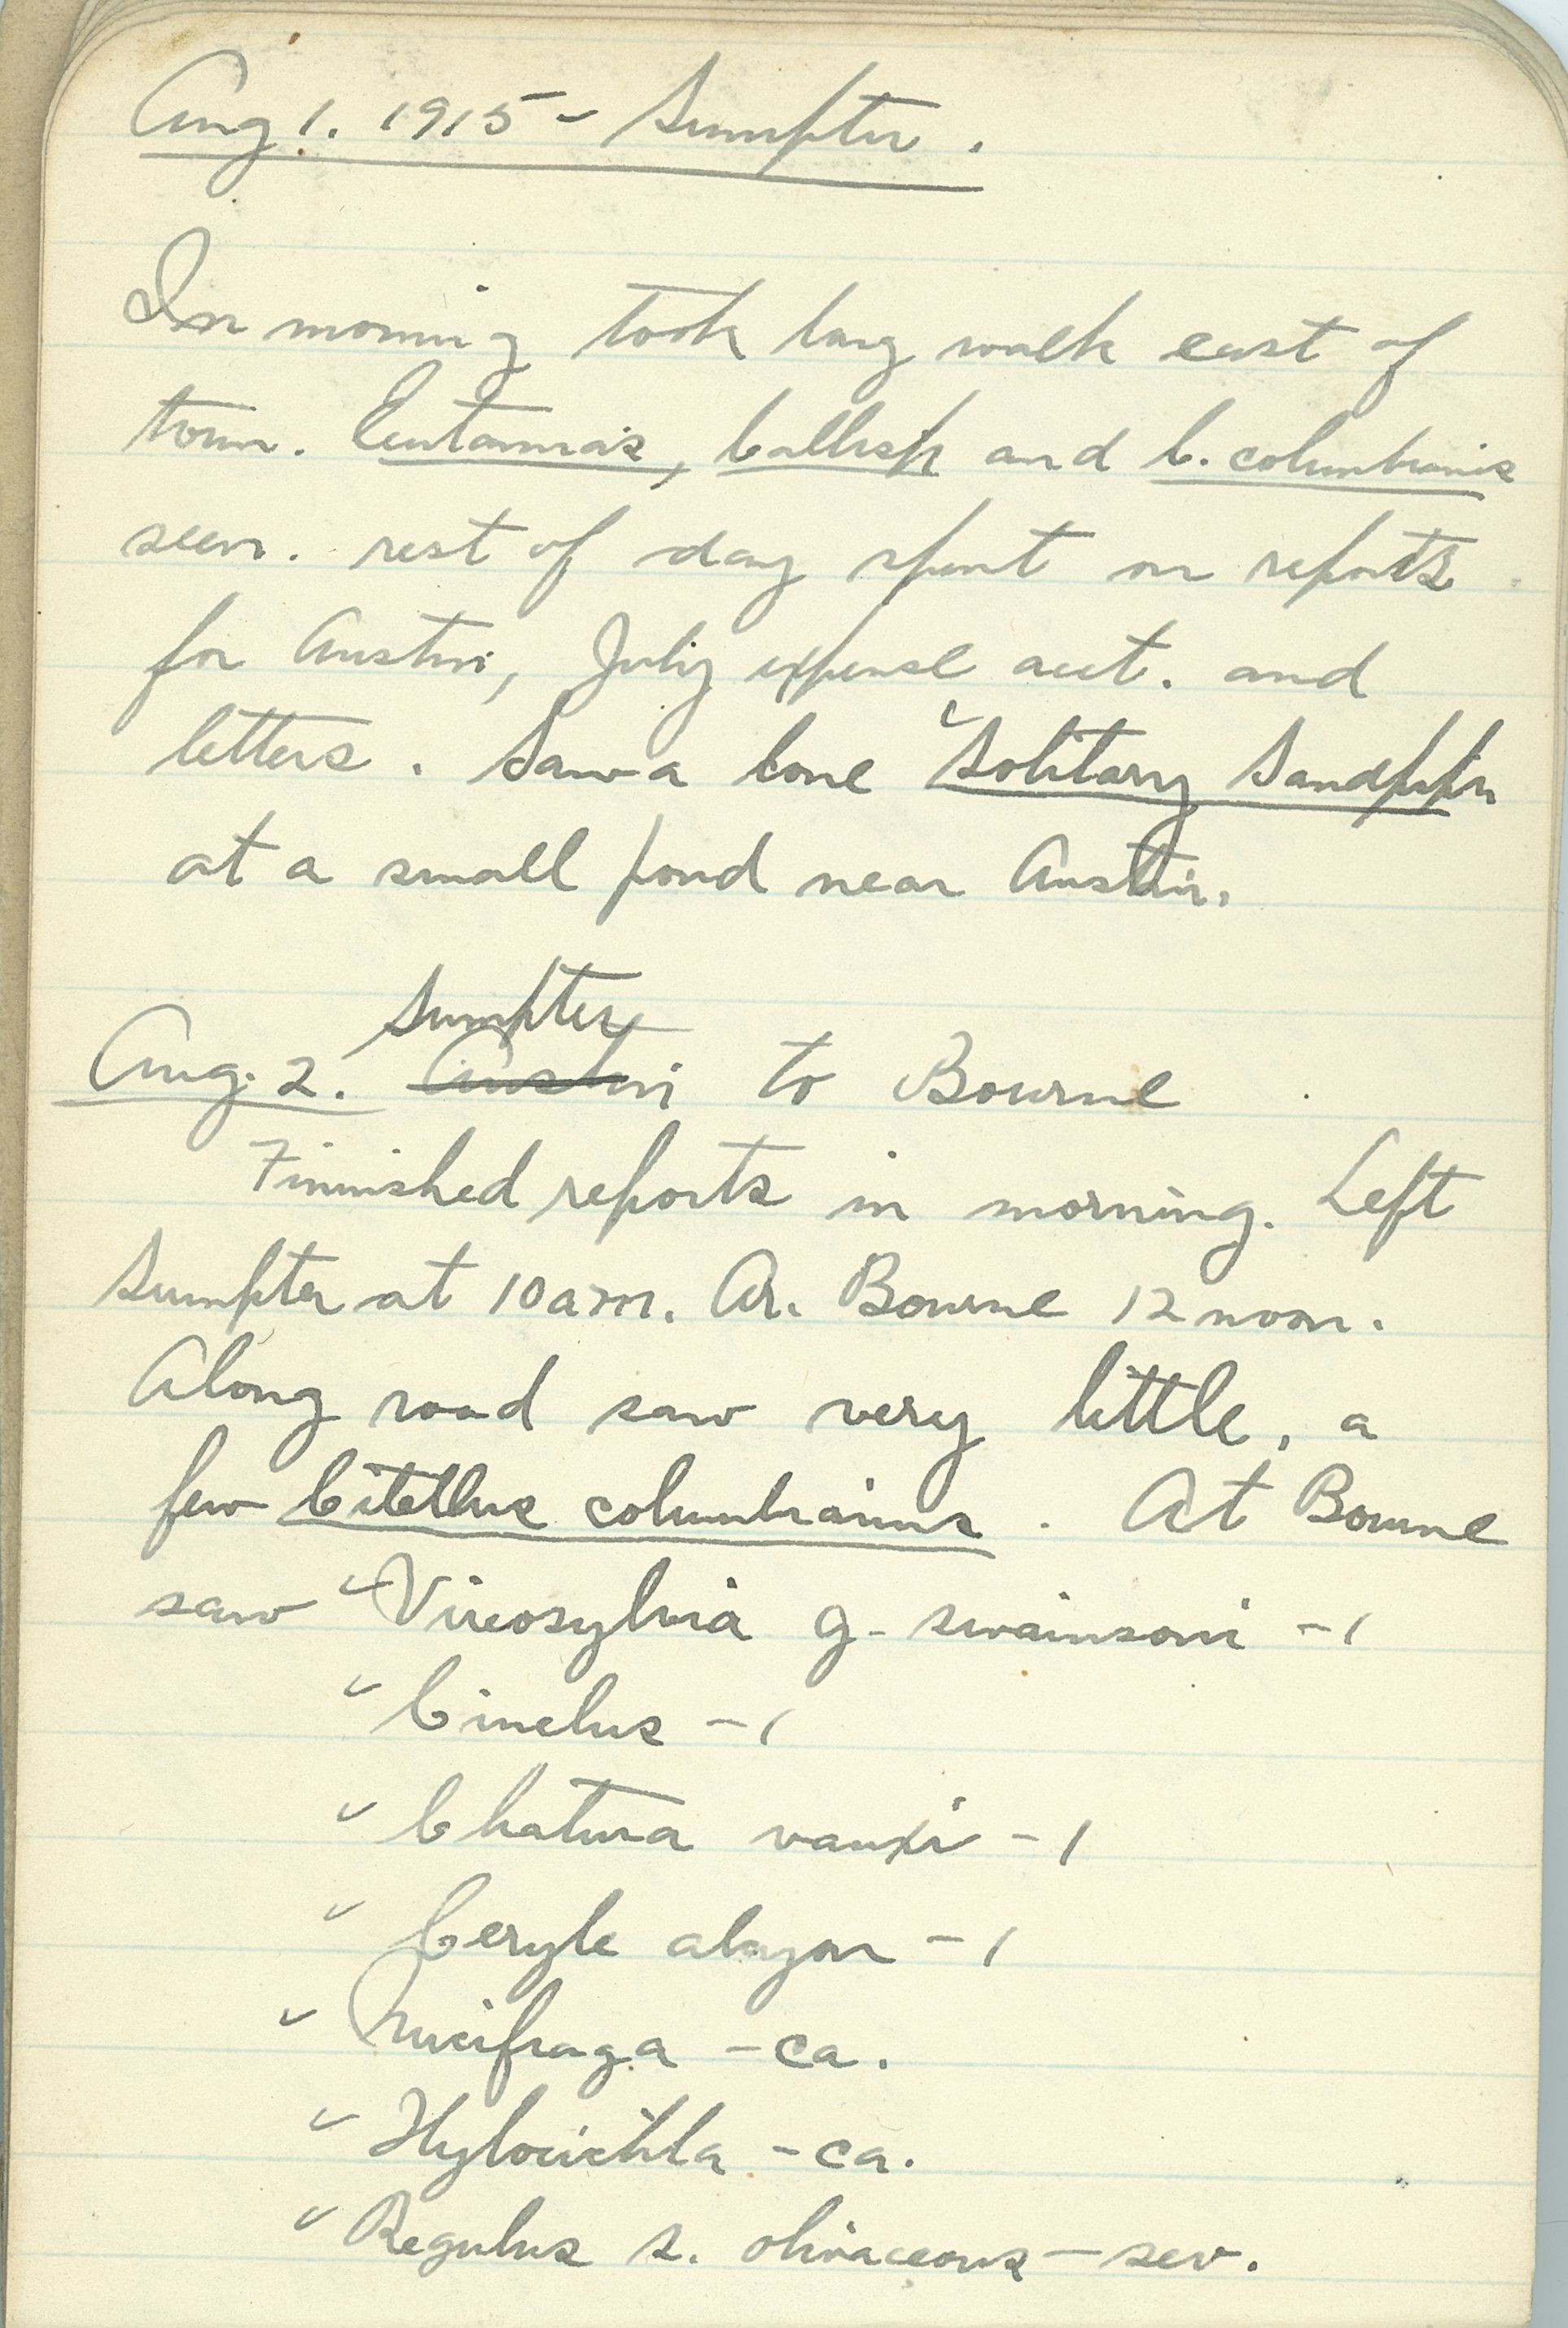 Aug 1. 1915 - Sumpter.
In morning took long walk east of
town. Eutamias, Callosp and C. columbianus
seen. rest of day spent on reports
for Austin, July expense acct. and
letters. Saw a lone ✓Solitary Sandpiper
at a small pond near Austin.
Sumpter
Aug. 2. Austin to Bourne
Finnished reports in morning. Left
Sumpter at 10 am. Ar. Bourne 12 noon.
Along road saw very little, a
few Citellus columbianus. At Bourne
saw ✓Vireosylvia g. swainsoni - 1
✓Cinclus - 1
✓Chatura vauxi - 1
✓Ceryle alcyon - 1
✓Nucifraga - ca.
✓Hylocichla - ca.
✓Regulus s. olivaceous - sev.